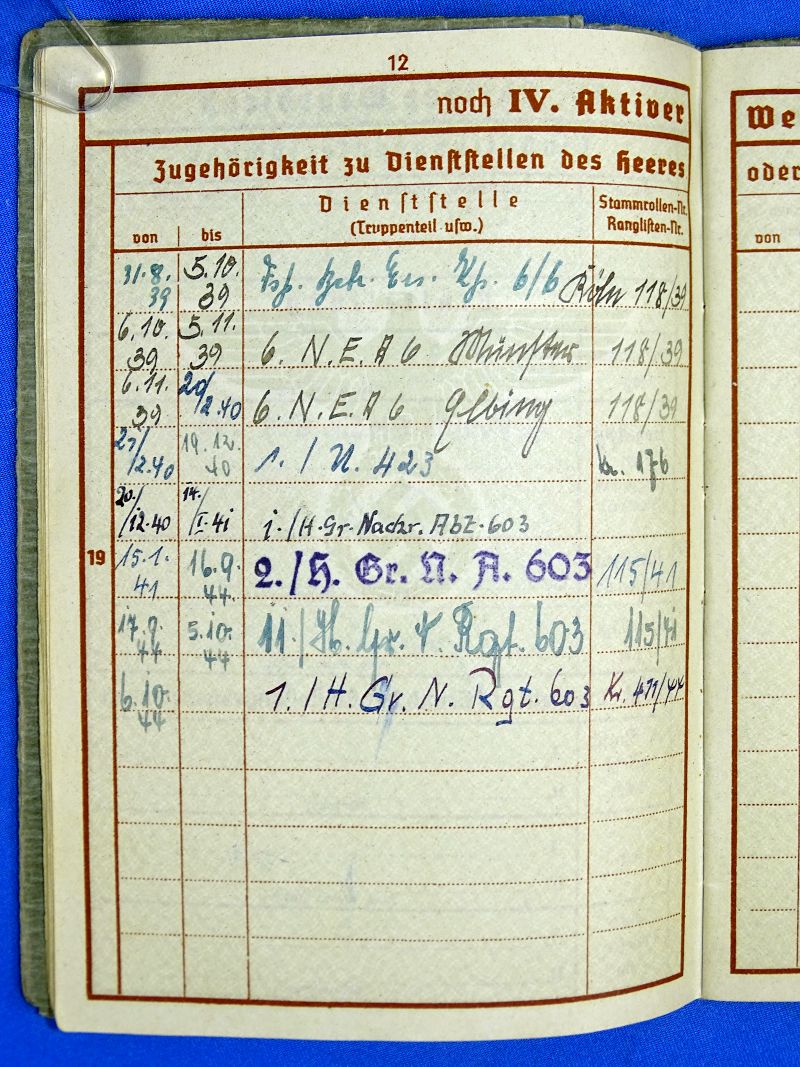 12
noch IV. Aktiver
Zugehörigkeit zu Dienststellen des Heeres
von
bis
Dienststelle
(Truppenteil usw.)
Stammrollen-Nr.
Ranglisten-Nr.
31.8. 39 5.10. 39 6/6 Köln 118/39
6.10. 39 5.11. 39 6. N.E.A 6 Münster 118/39
6.11. 39 20/2.40 6. N.E.A 6 Elbing 118/39
21/2.40 19.12. 40 1./N. 423 176
20./12.40 14./I.41 1./H.Gr.Nachr.Abt.603
19
15.1. 41 16.9. 44. 2./H. Gr. N. A. 603 115/41
17.9. 44 5.10. 44 11./H. Gr. N. Rgt. 603 115/41
6.10. 44 1./H. Gr. N. Rgt. 603 Kr. 411/44
We
oder
von